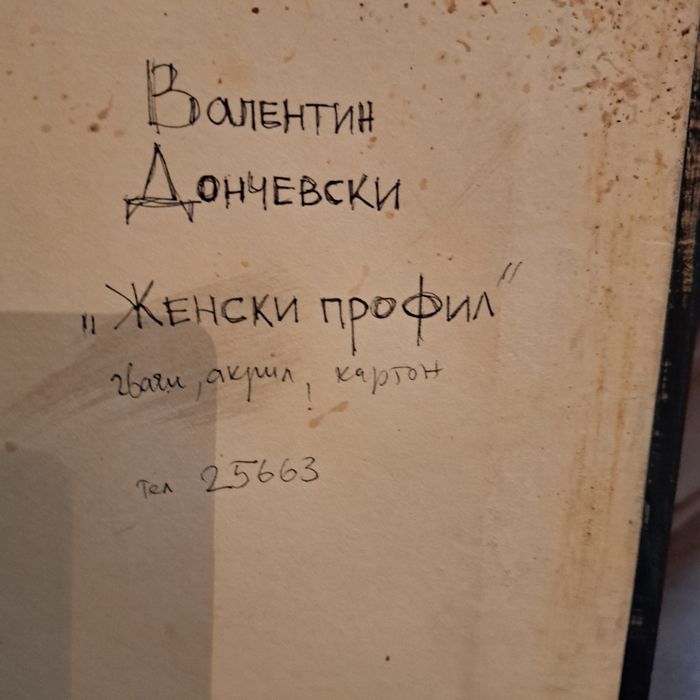 Валентин
Дончевски
„Женски профил"
гваш, акрил, картон
тел 25663